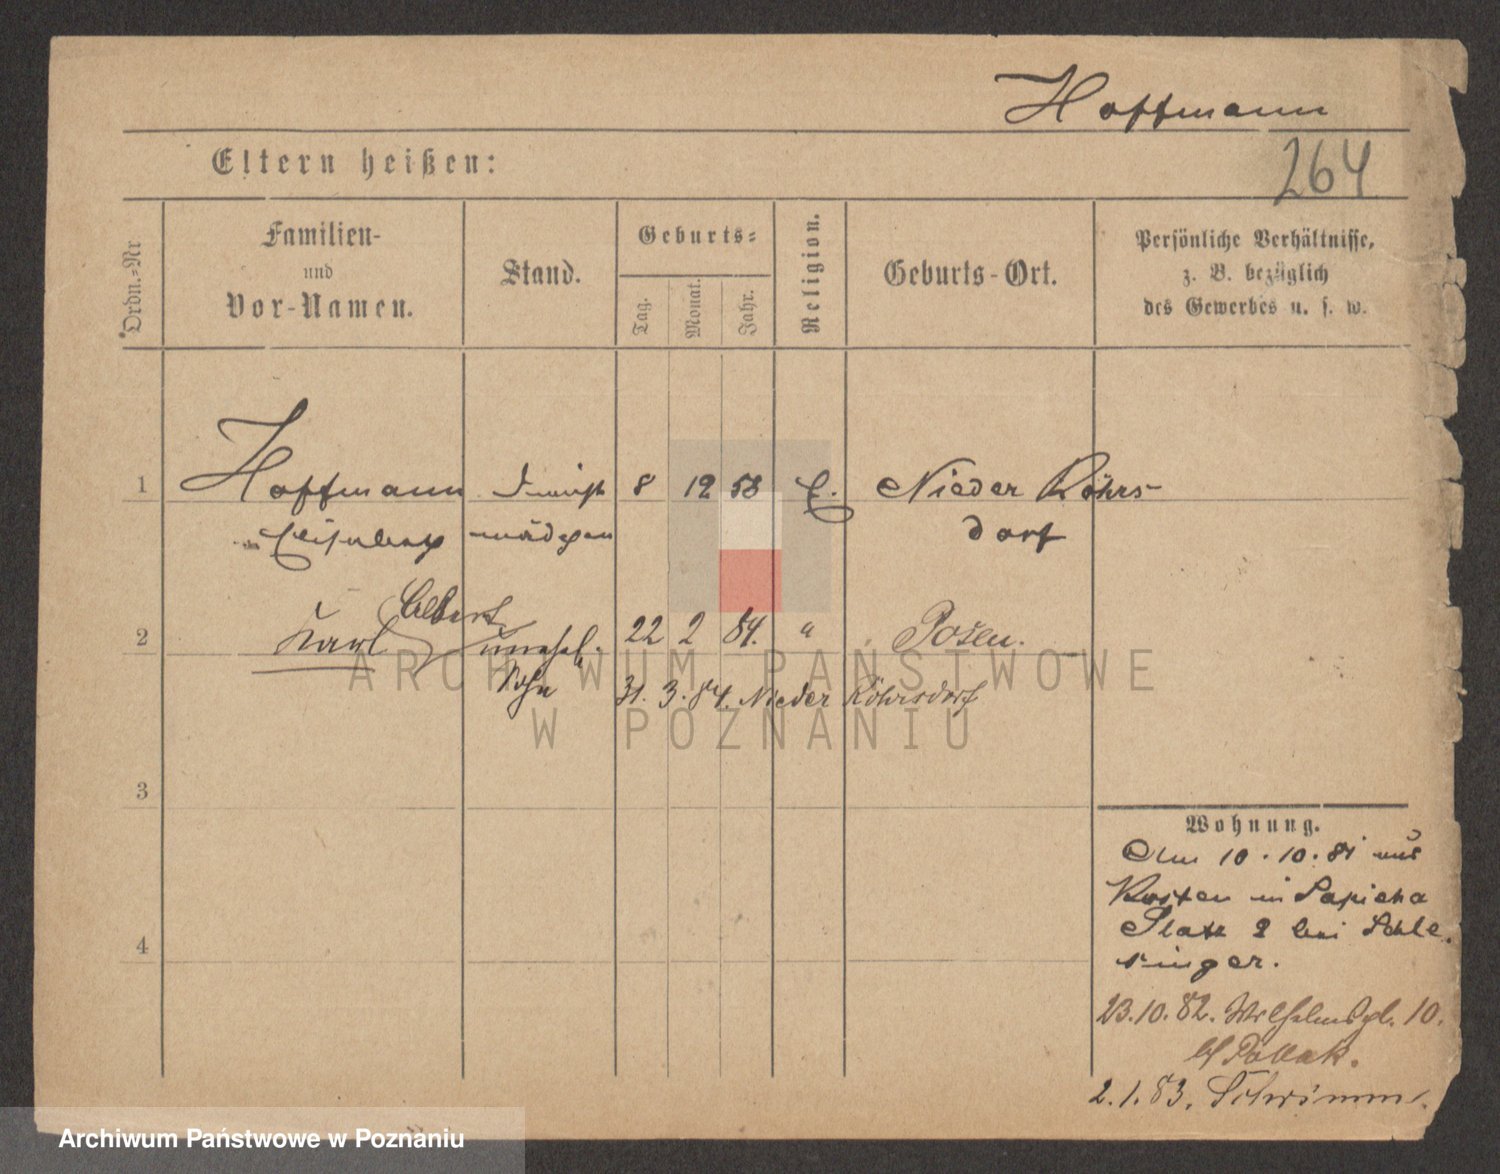 Hoffmann
264
Eltern heißen:
Ordn.-Nr
Familien-
und
Vor-Namen.
Stand.
Geburts-
Tag.
Monat.
Jahr.
Religion.
Geburts-Ort.
Persönliche Verhältnisse,
z. B. bezüglich
des Gewerbes u. s. w.
1 Hoffmann Dienst 8 12 58 E. Nieder Röhrs-
Elisabeth mädchen dorf
Albert
2 Karl unehel. 22 2 84. " Posen.
Sohn 31. 3. 84. Nieder Röhrsdorf
3
4
Wohnung.
Am 10.10.81 aus
Kosten in Sapieha
Platz 2 bei Schle
singer.
23.10.82. Wilhelmspl. 10.
b/ Pollak.
2.1.83.
ARCHIWUM PAŃSTWOWE
W POZNANIU
Archiwum Państwowe w Poznaniu